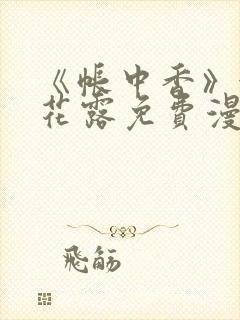 《帐中香》
花露免費漫
飛觞